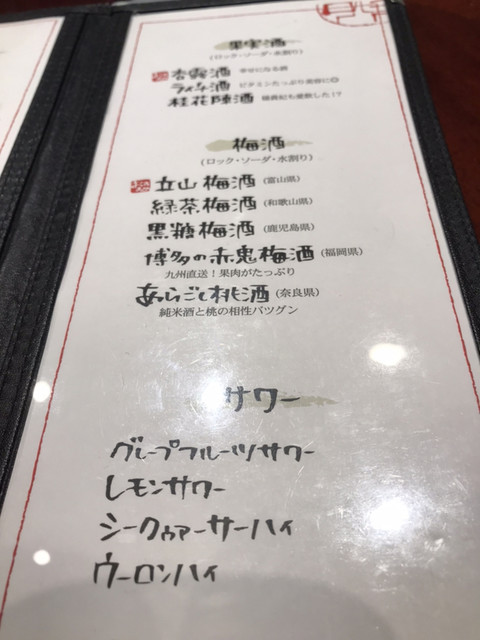 果実酒
(ロック・ソーダ・水割り)
杏露酒 幸せになる酒
ライチ酒 ビタミンたっぷり美容に◎
桂花陳酒 楊貴妃も愛飲した!?
梅酒
(ロック・ソーダ・水割り)
立山梅酒 (富山県)
緑茶梅酒 (和歌山県)
黒糖梅酒 (鹿児島県)
博多の赤鬼梅酒 (福岡県)
九州直送!果肉がたっぷり
あらごし桃酒 (奈良県)
純米酒と桃の相性バツグン
サワー
グレープフルーツサワー
レモンサワー
シークゥァーサーハイ
ウーロンハイ